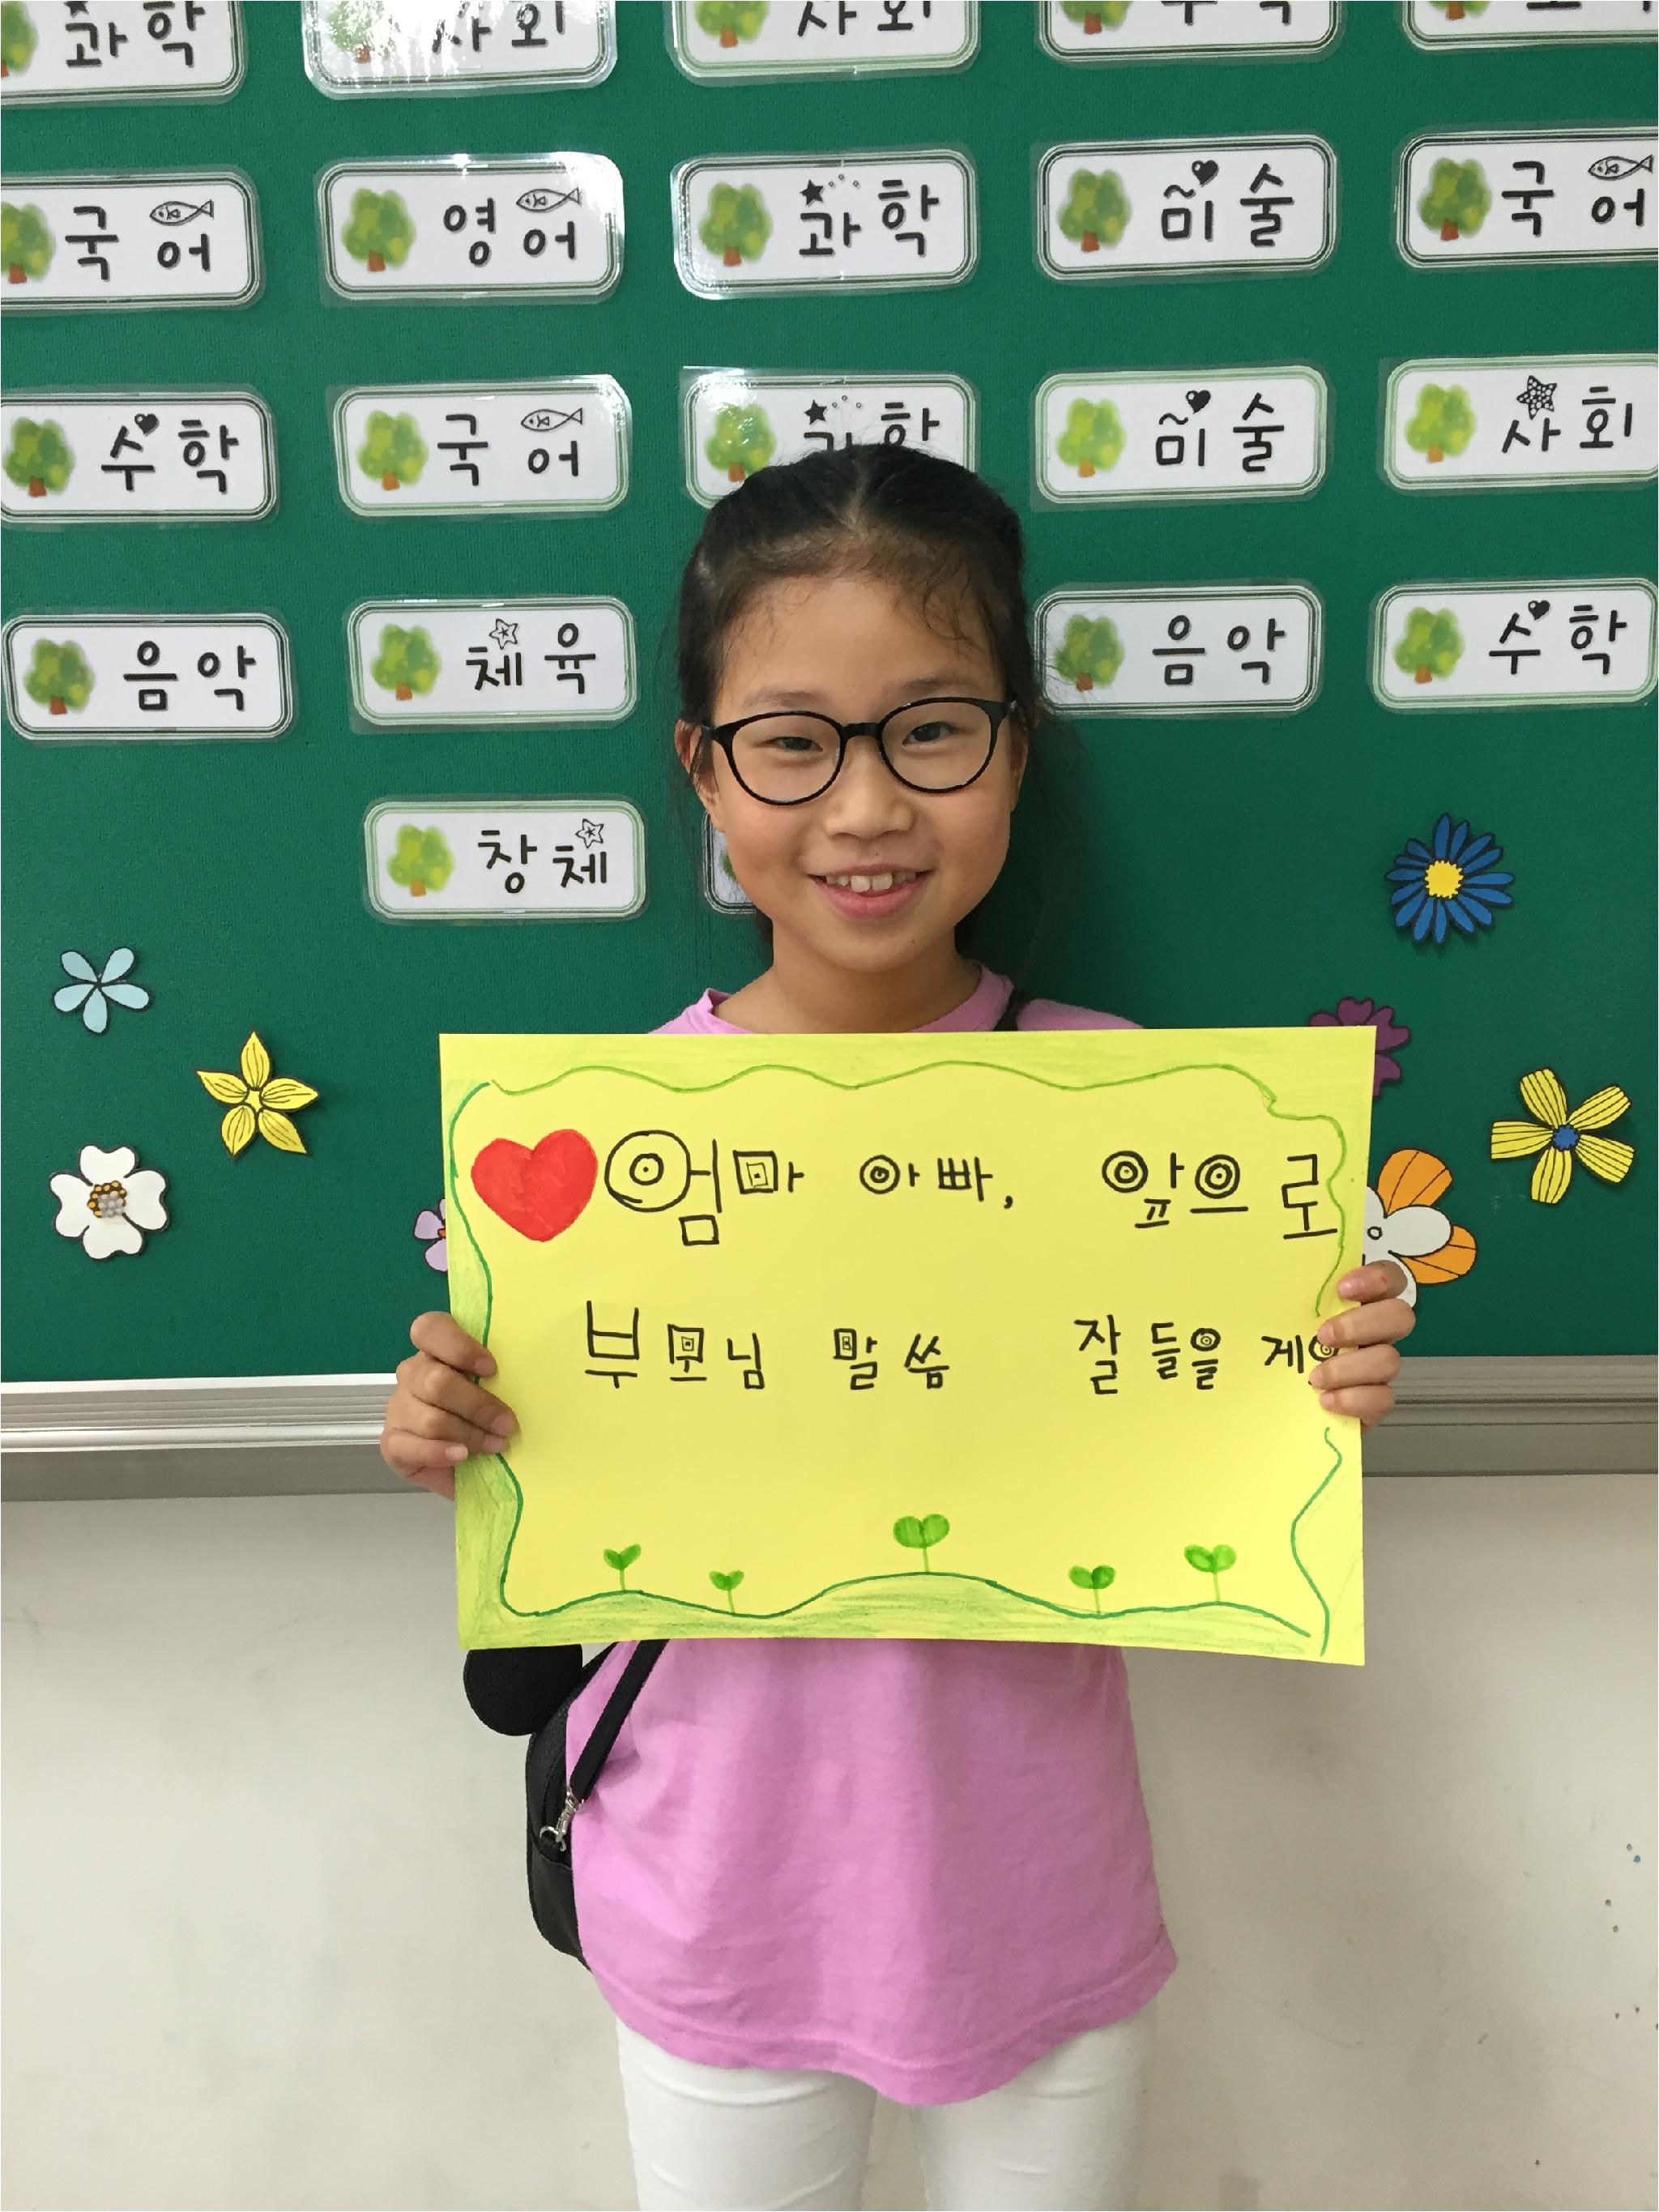 과학 사회 사회 수학
국어 영어 과학 미술 국어
수학 국어 과학 미술 사회
음악 체육 음악 수학
창체
엄마 아빠, 앞으로
부모님 말씀 잘 들을게